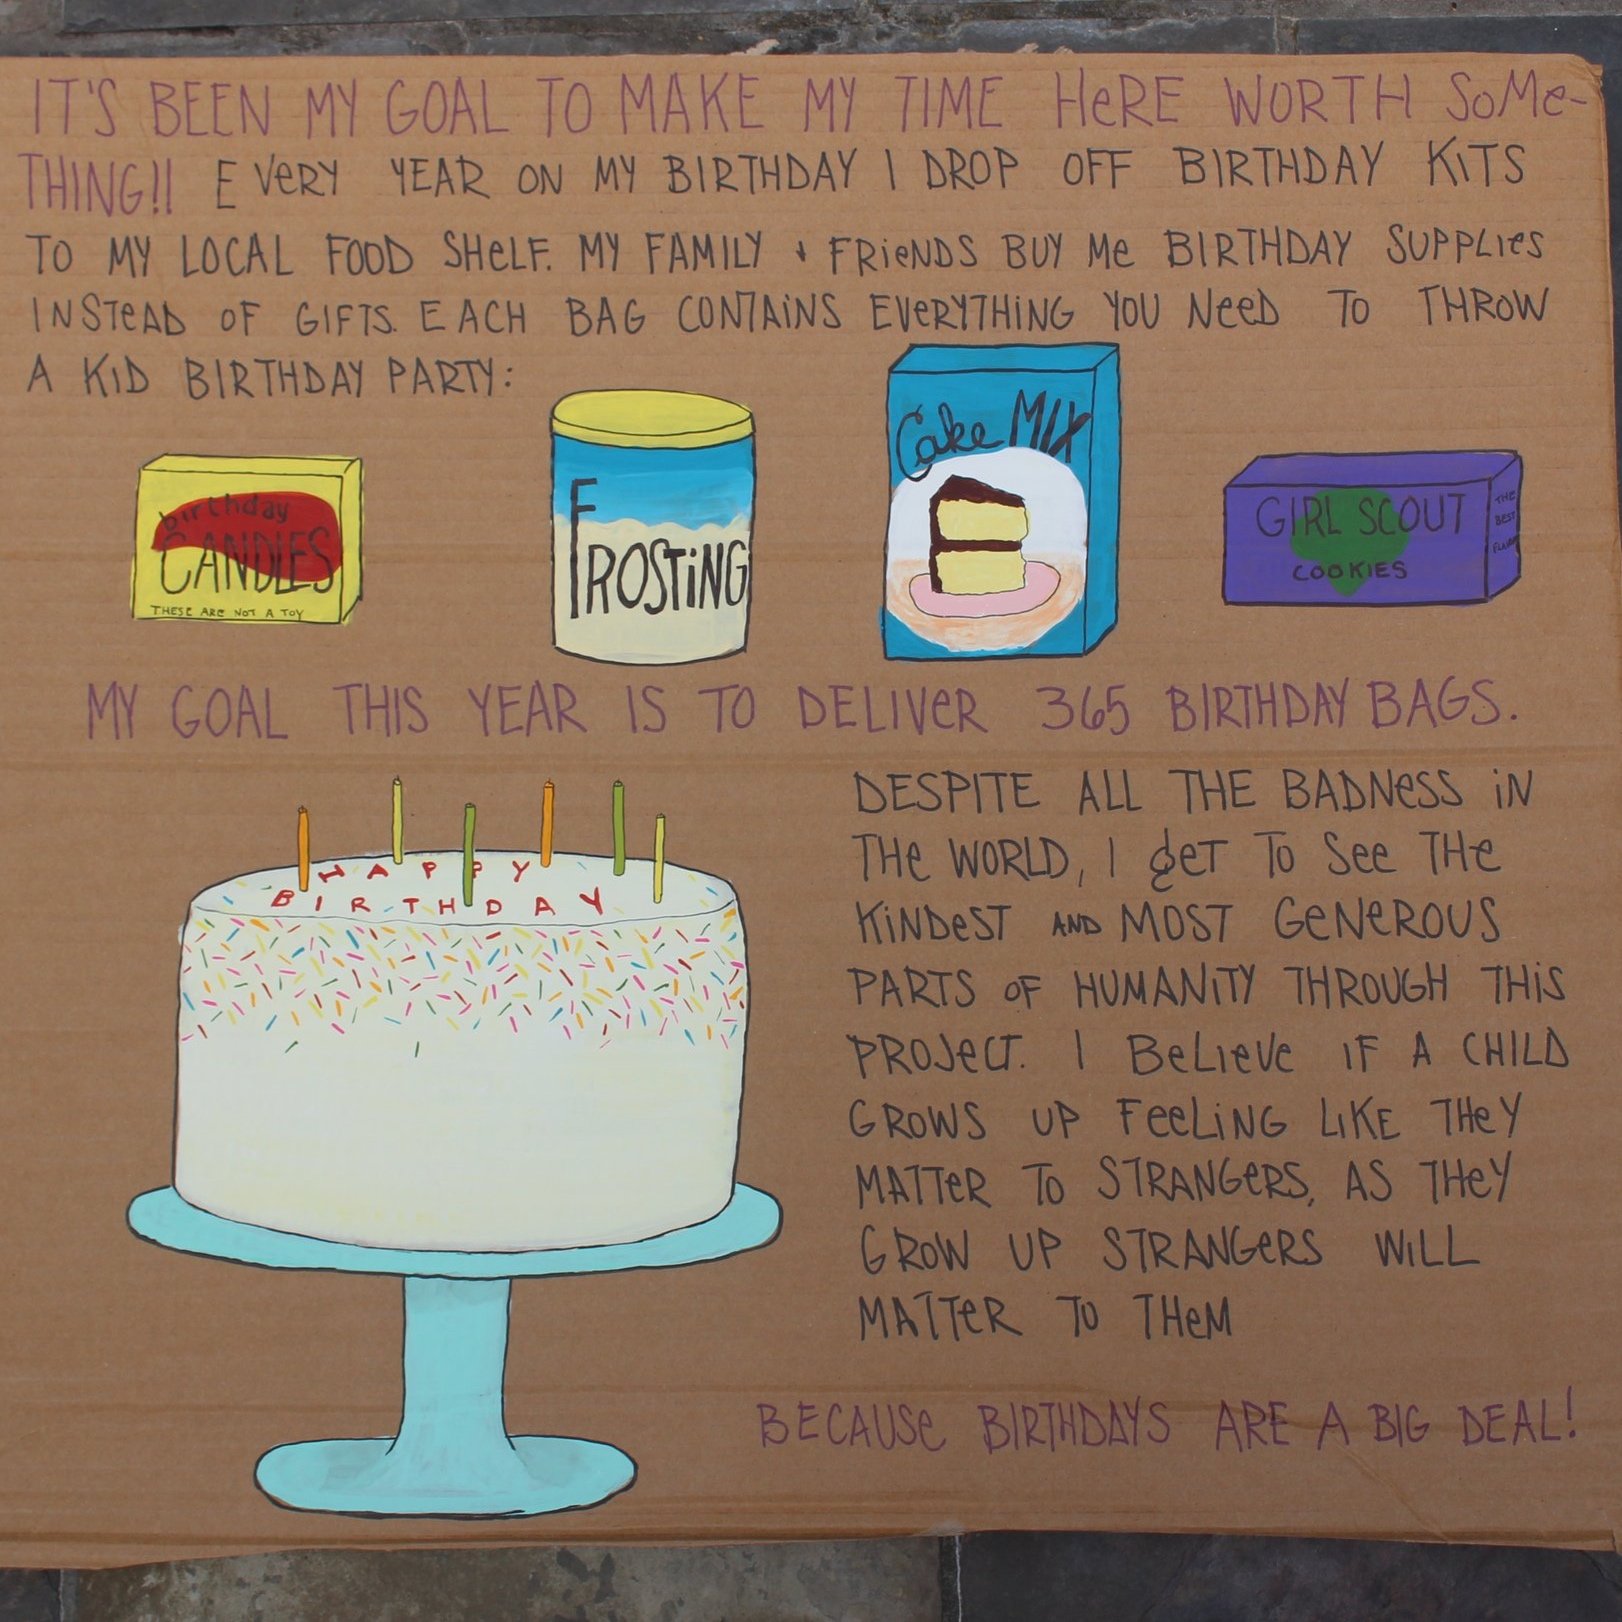 IT'S BEEN MY GOAL TO MAKE MY TIME HeRE WORTH SoMe-
THING!! EVeRY YEAR ON MY BIRTHDAY I DROP OFF BIRTHDAY KiTS
TO MY LOCAL FOOD SHeLF. MY FAMILY + FRieNDS BUY Me BIRTHDAY SUPPLies
INSTeAD OF GIFTS. EACH BAG CONTAiNS EVeRYTHiNG YOU NeeD TO THROW
A KiD BIRTHDAY PARTY:
birthday
CANDLES
THESE ARe NOT A TOY
FROSTiNG
Cake MIX
GIRL SCOUT
COOKIES
THE
BEST
MY GOAL THIS YEAR IS TO DELIVeR 365 BIRTHDAY BAGS.
HAPPY
BIRTHDAY
DESPITE ALL THE BADNeSS iN
THe WORLD, I geT To See THe
KiNDeST AND MOST GeNeROUS
PARTS OF HUMANiTY THROUGH THiS
PROJeCT. I BeLieVe IF A CHILD
GROWS UP FeeLiNG LiKE THeY
MATTeR To STRANGeRS, AS THeY
GROW UP STRANGeRS WiLL
MATTeR TO THeM
BECAUSe BIRTHDAYS ARE A BIG DEAL!